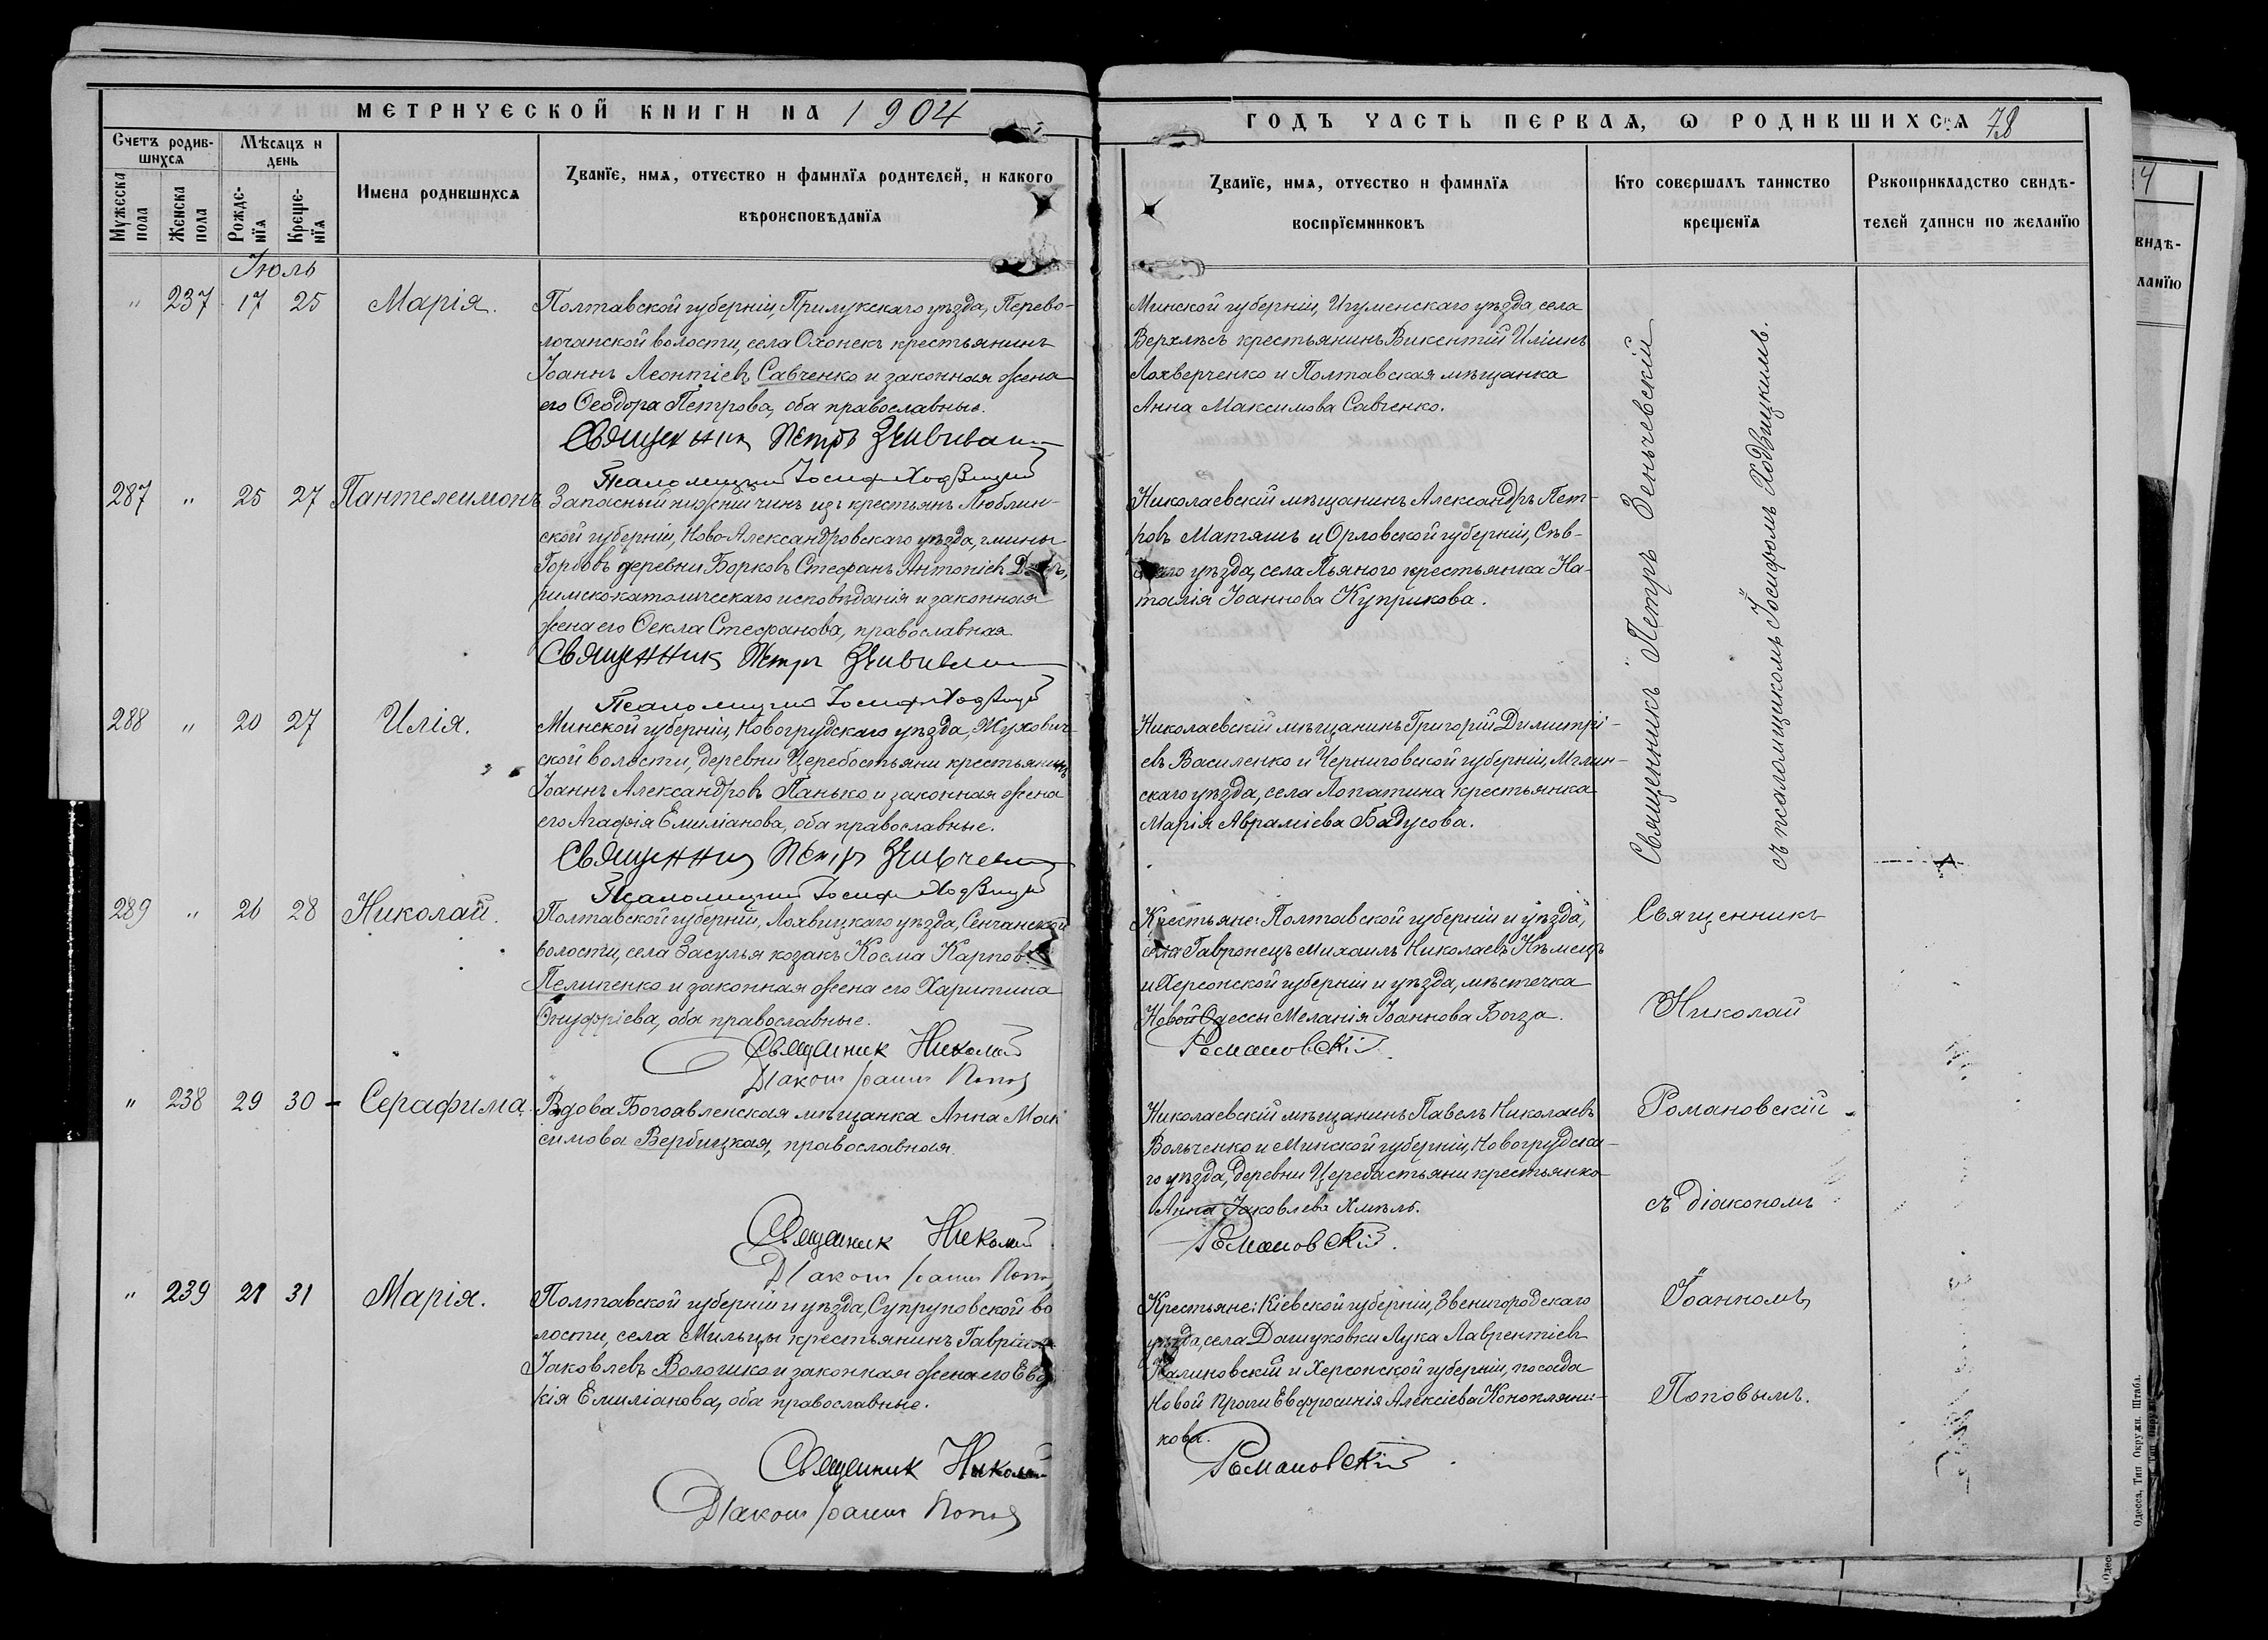 МЕТРИЧЕСКОЙ КНИГИ НА 1904
Счетъ родив-
шихся
Мѣсяцъ и
день
Мужеска
пола
Женска
пола
Рожде-
нія
Креще-
нія
Имена родившихся
Званіе, имя, отчество и фамилія родителей, и какого
вѣроисповѣданія
Іюль
" 237 17 25 Марія.
Полтавской губерніи, Прилукскаго уѣзда, Перево-
лочанской волости, села Охонекъ крестьянинъ
Іоаннъ Леонтіевъ Савченко и законная жена
его Ѳеодора Петрова, оба православные.
Священникъ Петръ
Псаломщикъ Іосифъ Ходвицкій
287 " 25 27 Пантелеимонъ
Запасный нижній чинъ изъ крестьянъ Люблин-
ской губерніи, Ново-Александровскаго уѣзда, гмины
Горбовъ деревни Борковъ Стефанъ Антоніевъ
римско-католическаго исповѣданія и законная
жена его Ѳекла Стефанова, православная.
Священникъ Петръ
Псаломщикъ Іосифъ Ходвицкій
288 " 20 27 Илія.
Минской губерніи, Новогрудскаго уѣзда, Жухович-
ской волости, деревни Церебостьяни крестьянинъ
Іоаннъ Александровъ Панько и законная жена
его Агафія Емиліанова, оба православные.
Священникъ Петръ
Псаломщикъ Іосифъ Ходвицкій
289 " 26 28 Николай.
Полтавской губерніи, Лохвицкаго уѣзда, Сенчанской
волости, села Засулья козакъ Косма Карповъ
Пелипенко и законная жена его Харитина
Онуфріева, оба православные.
Священникъ Николай
Діаконъ Іоаннъ Поповъ
" 238 29 30 - Серафима.
Вдова Богоявленская мѣщанка Анна Мак
симова Вербицкая, православная.
Священникъ Николай
Діаконъ Іоаннъ Поповъ
" 239 21 31 Марія.
Полтавской губерніи и уѣзда, Супруновской во
лости, села Мильцы крестьянинъ Гавріилъ
Іаковлевъ Волошко и законная жена его Евдо
кія Емиліанова, оба православные.
Священникъ Николай
Діаконъ Іоаннъ Поповъ
ГОДЪ ЧАСТЬ ПЕРВАЯ, Ѡ РОДИВШИХСЯ 78
Званіе, имя, отчество и фамилія
воспріемниковъ
Кто совершалъ таинство
крещенія
Рукоприкладство свидѣ-
телей записи по желанію
Минской губерніи, Игуменскаго уѣзда, села
Верхлѣсъ крестьянинъ Викентій Иліинъ
Лохверченко и Полтавская мѣщанка
Анна Максимова Савченко.
Николаевскій мѣщанинъ Александръ Пет-
ровъ Матяшъ и Орловской губерніи, Сѣв-
скаго уѣзда, села Пьяного крестьянка На-
талія Іоаннова Куприкова.
Николаевскій мѣщанинъ Григорій Димитрі-
евъ Василенко и Черниговской губерніи, Мглин-
скаго уѣзда, села Лопатина крестьянка
Марія Авраміева Бадусова.
Священникъ Петръ Зеньчевскій
съ псаломщикомъ Іосифомъ Ходвицкимъ.
Крестьяне: Полтавской губерніи и уѣзда,
села Гавронецъ Михаилъ Николаевъ Нѣмецъ
и Херсонской губерніи и уѣзда, мѣстечка
Новой Одессы Меланія Іоаннова Богза.
Романовскій
Николаевскій мѣщанинъ Павелъ Николаевъ
Вольченко и Минской губерніи, Новогрудска-
го уѣзда, деревни Церебастьяни крестьянка
Анна Іаковлева Хмѣль.
Романовскій.
Крестьяне: Кіевской губерніи, Звенигородскаго
уѣзда, села Дашуковки Лука Лаврентіевъ
Калиновскій и Херсонской губерніи, посада
Новой Праги Евфросинія Алексіева Коноплянни-
кова.
Романовскій
Священникъ
Николай
Романовскій
съ діакономъ
Іоанномъ
Поповымъ.
4
видѣ-
ланію
Одесса, Тип Окружн. Штаба.